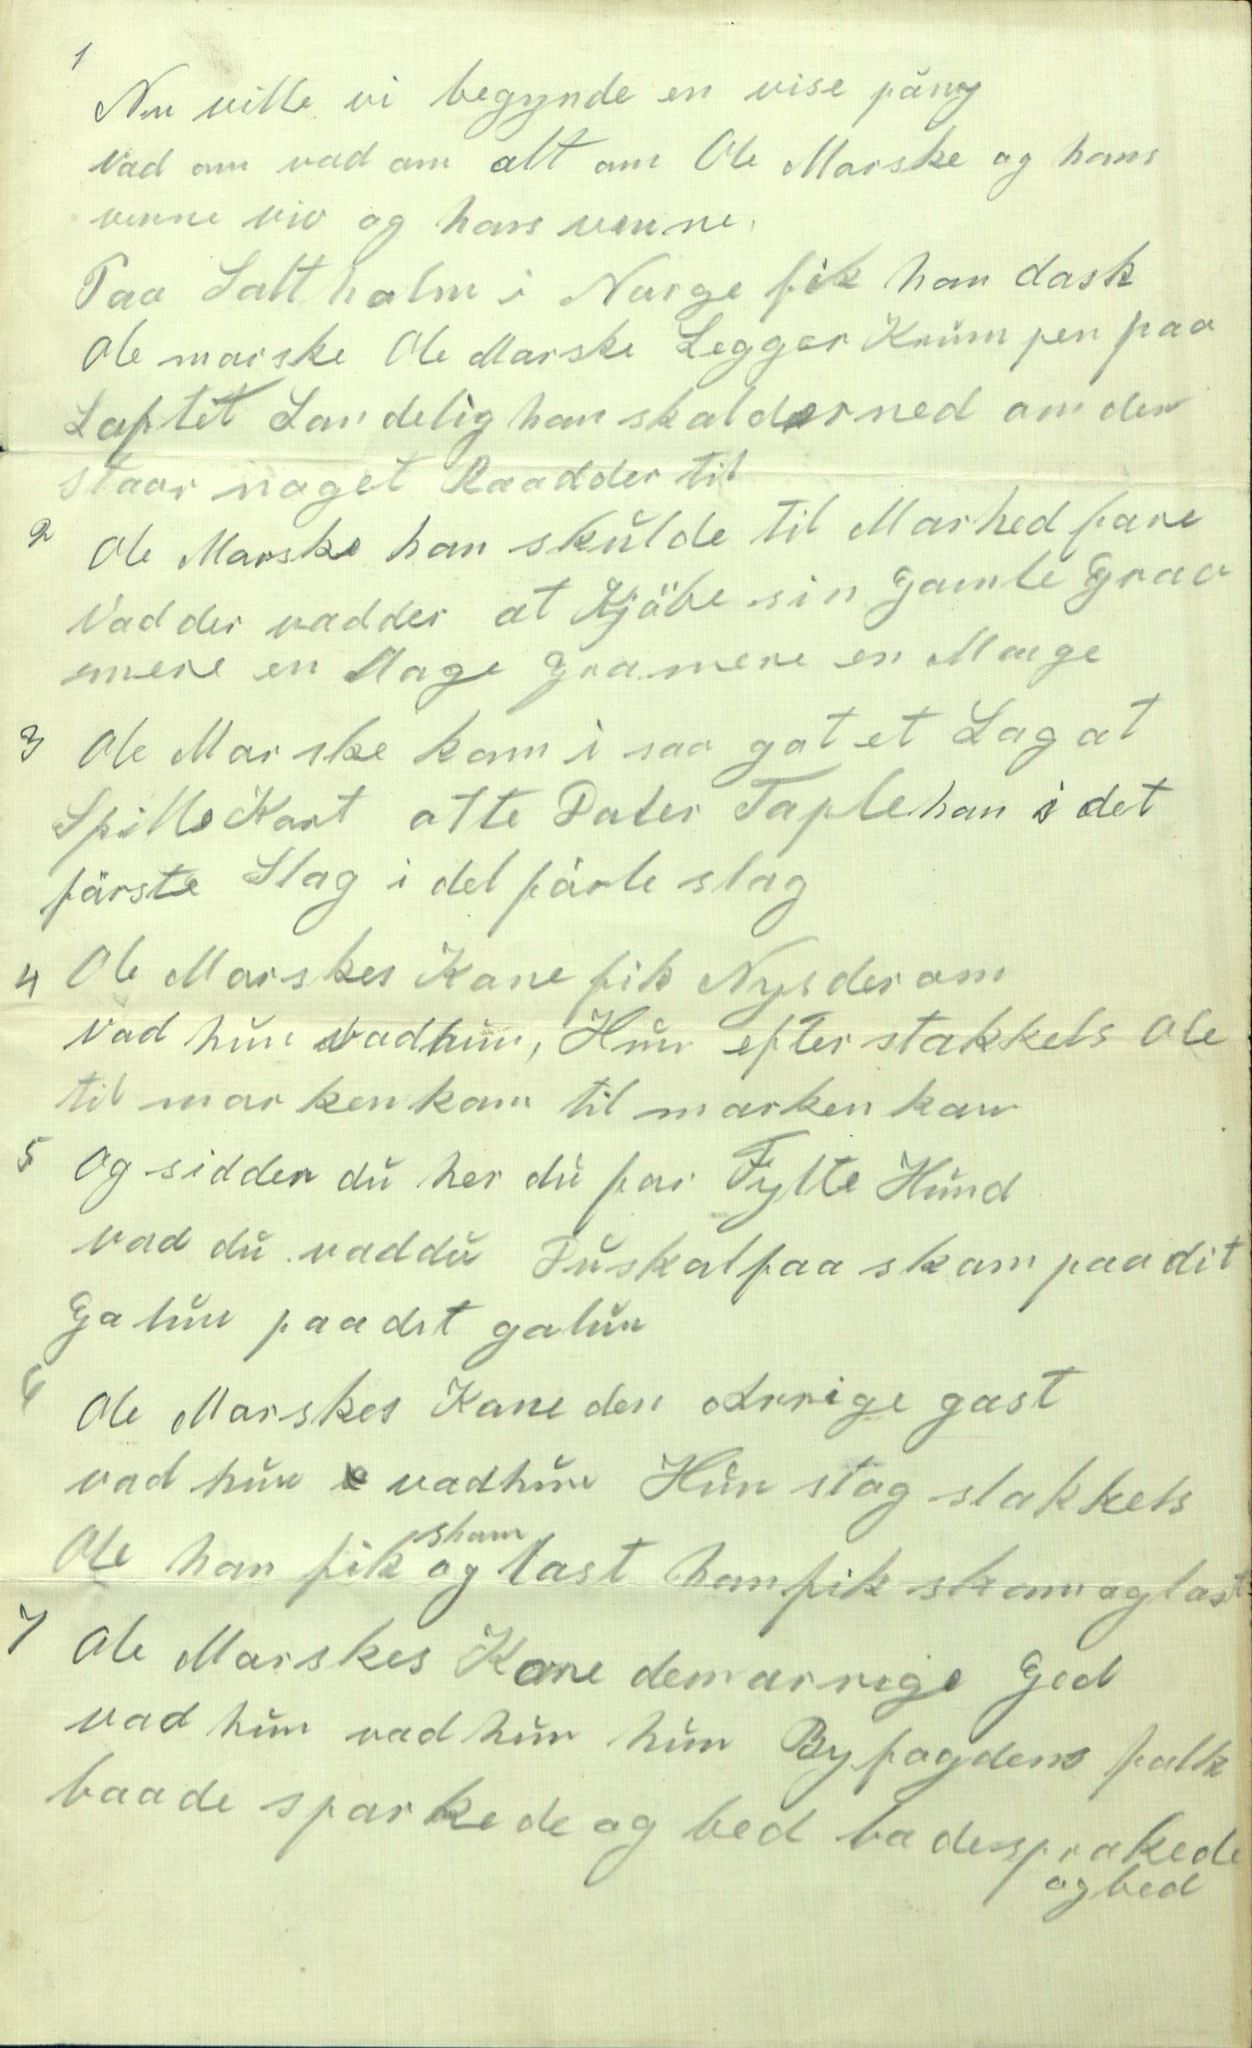 1
Nu ville vi begynde en vise påny
Vad om vad om alt om Ole Marske og hans
venne viv og hans venne.
Paa Saltholm i Norge fik han dask
Ole marske Ole Marske Legger Krumpen paa
Loftet Lan delig han skal der ned om der
staar noget Raadder til
2 Ole Marske han skulde til Marked fare
Vad der vadder at Kjöbe sin Gamle Graa
mere en Mage Gra mere en Mage
3 Ole Marske kom i saa got et Lag at
Spille Kort otte Daler Tapte han i det
förste Slag i det förte slag
4 Ole Marskes Kone fik Nys derom
Vad hun Vadhun, Hun efter stakkels Ole
til marken kom til marken kom
5 Og sidder du her du for Fylte Hund
vad du vaddu Du skal faa skam paa dit
Ga hun paa dit gahun
6 Ole Marskes Kone den arrige gast
vad hun vadhun Hun slog stakkels
Ole han fik skam og last han fik skam og last
7 Ole Marskes Kone den arrige Ged
vad hun vad hun hun Byfogdens folk
baade sparkede og bed bade sprakede
og bed